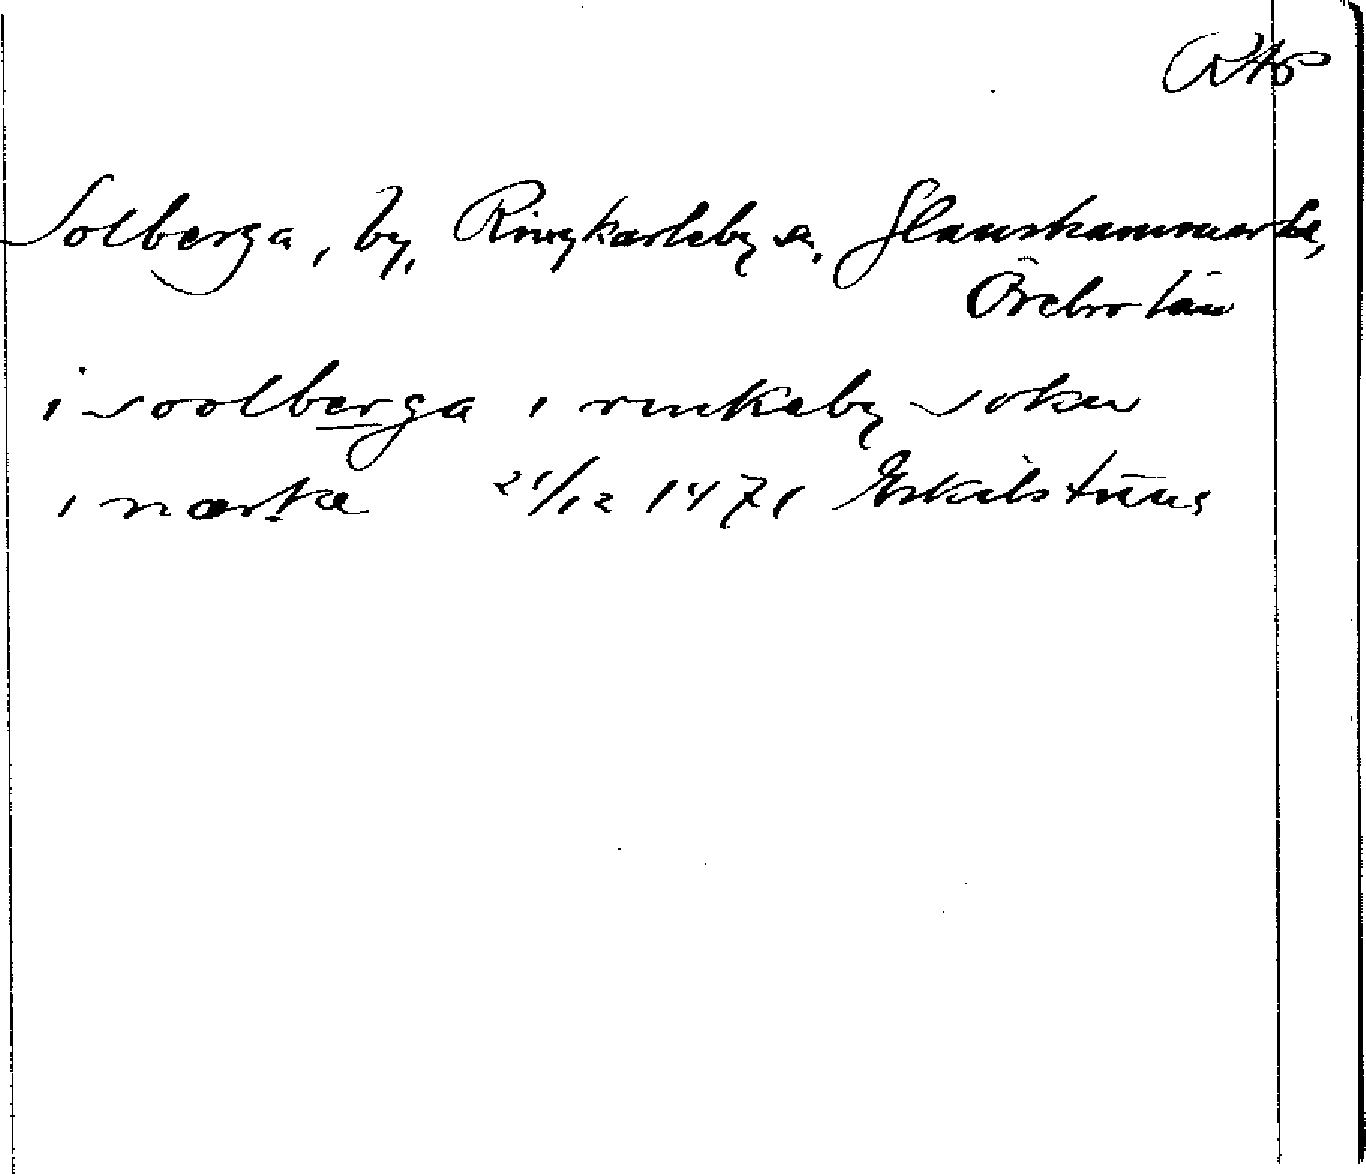 RAp
Solberga, by, Ringkarleby sn, Glanshammars hd,
Örebro län
i soolberga i rinkaby sokn
i nærka 21/12 1471 Eskilstuna